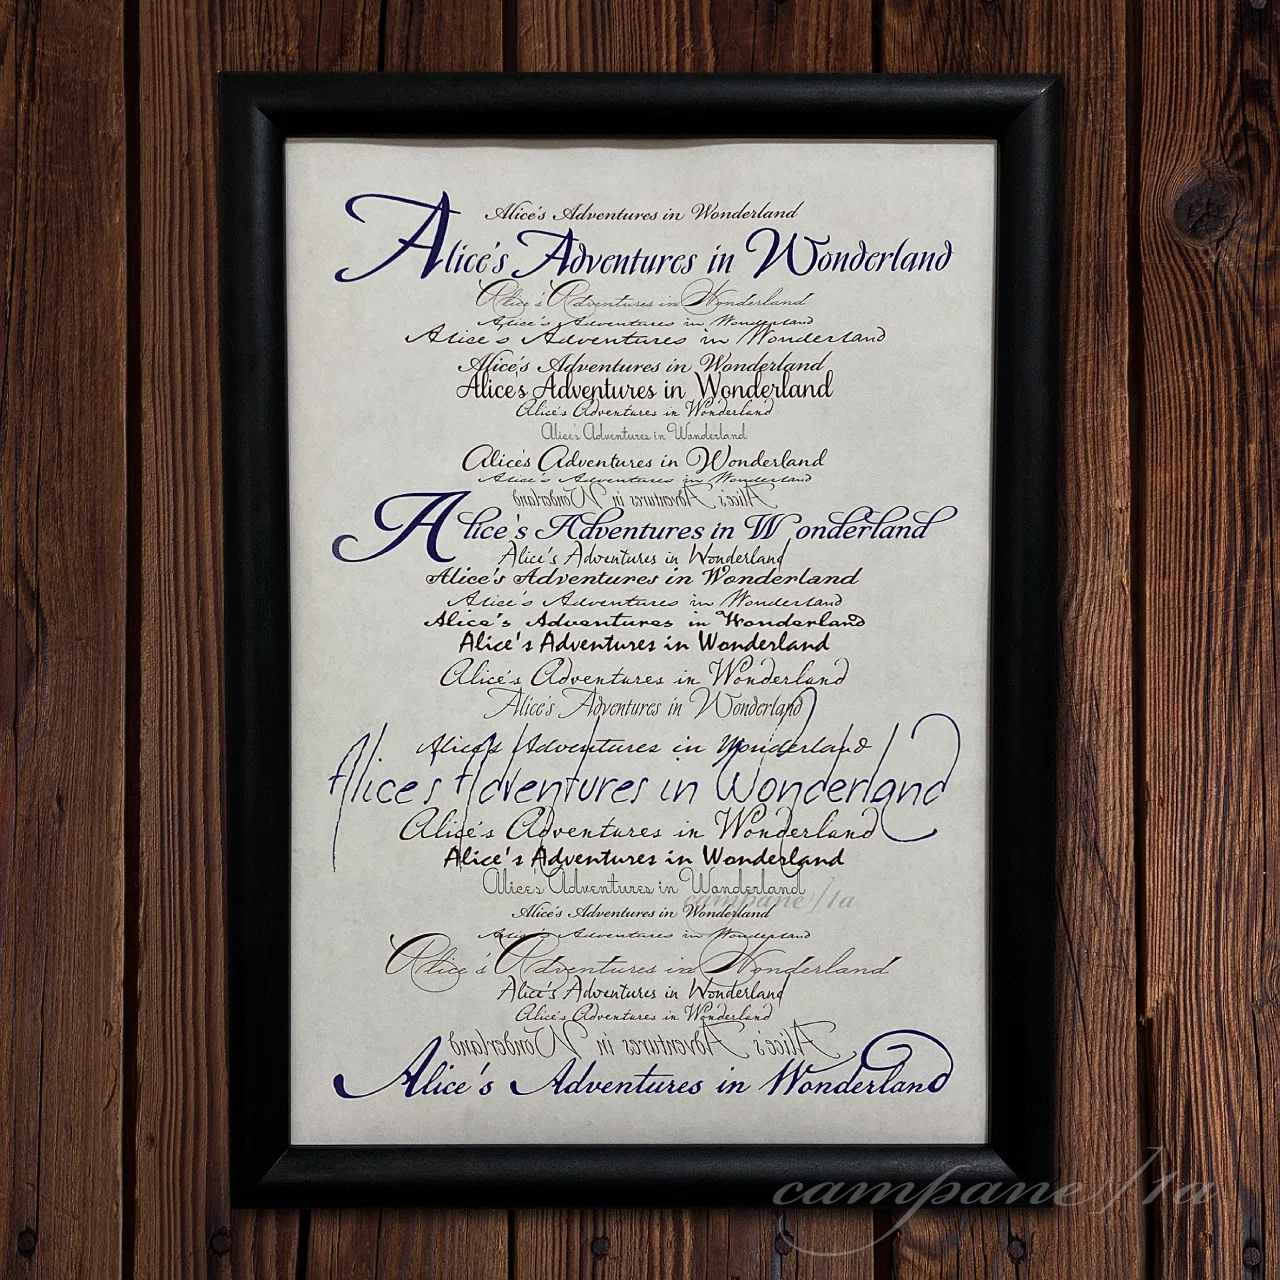 Alice's Adventures in Wonderland
Alice's Adventures in Wonderland
Alice's Adventures in Wonderland
Alice's Adventures in Wonderland
Alice's Adventures in Wonderland
Alice's Adventures in Wonderland
Alice's Adventures in Wonderland
Alice's Adventures in Wonderland
Alice's Adventures in Wonderland
Alice's Adventures in Wonderland
Alice's Adventures in Wonderland
Alice's Adventures in Wonderland
Alice's Adventures in Wonderland
Alice's Adventures in Wonderland
Alice's Adventures in Wonderland
Alice's Adventures in Wonderland
Alice's Adventures in Wonderland
Alice's Adventures in Wonderland
Alice's Adventures in Wonderland
Alice's Adventures in Wonderland
Alice's Adventures in Wonderland
Alice's Adventures in Wonderland
Alice's Adventures in Wonderland
Alice's Adventures in Wonderland
Alice's Adventures in Wonderland
campanella
Alice's Adventures in Wonderland
Alice's Adventures in Wonderland
Alice's Adventures in Wonderland
Alice's Adventures in Wonderland
Alice's Adventures in Wonderland
Alice's Adventures in Wonderland
Alice's Adventures in Wonderland
campanella